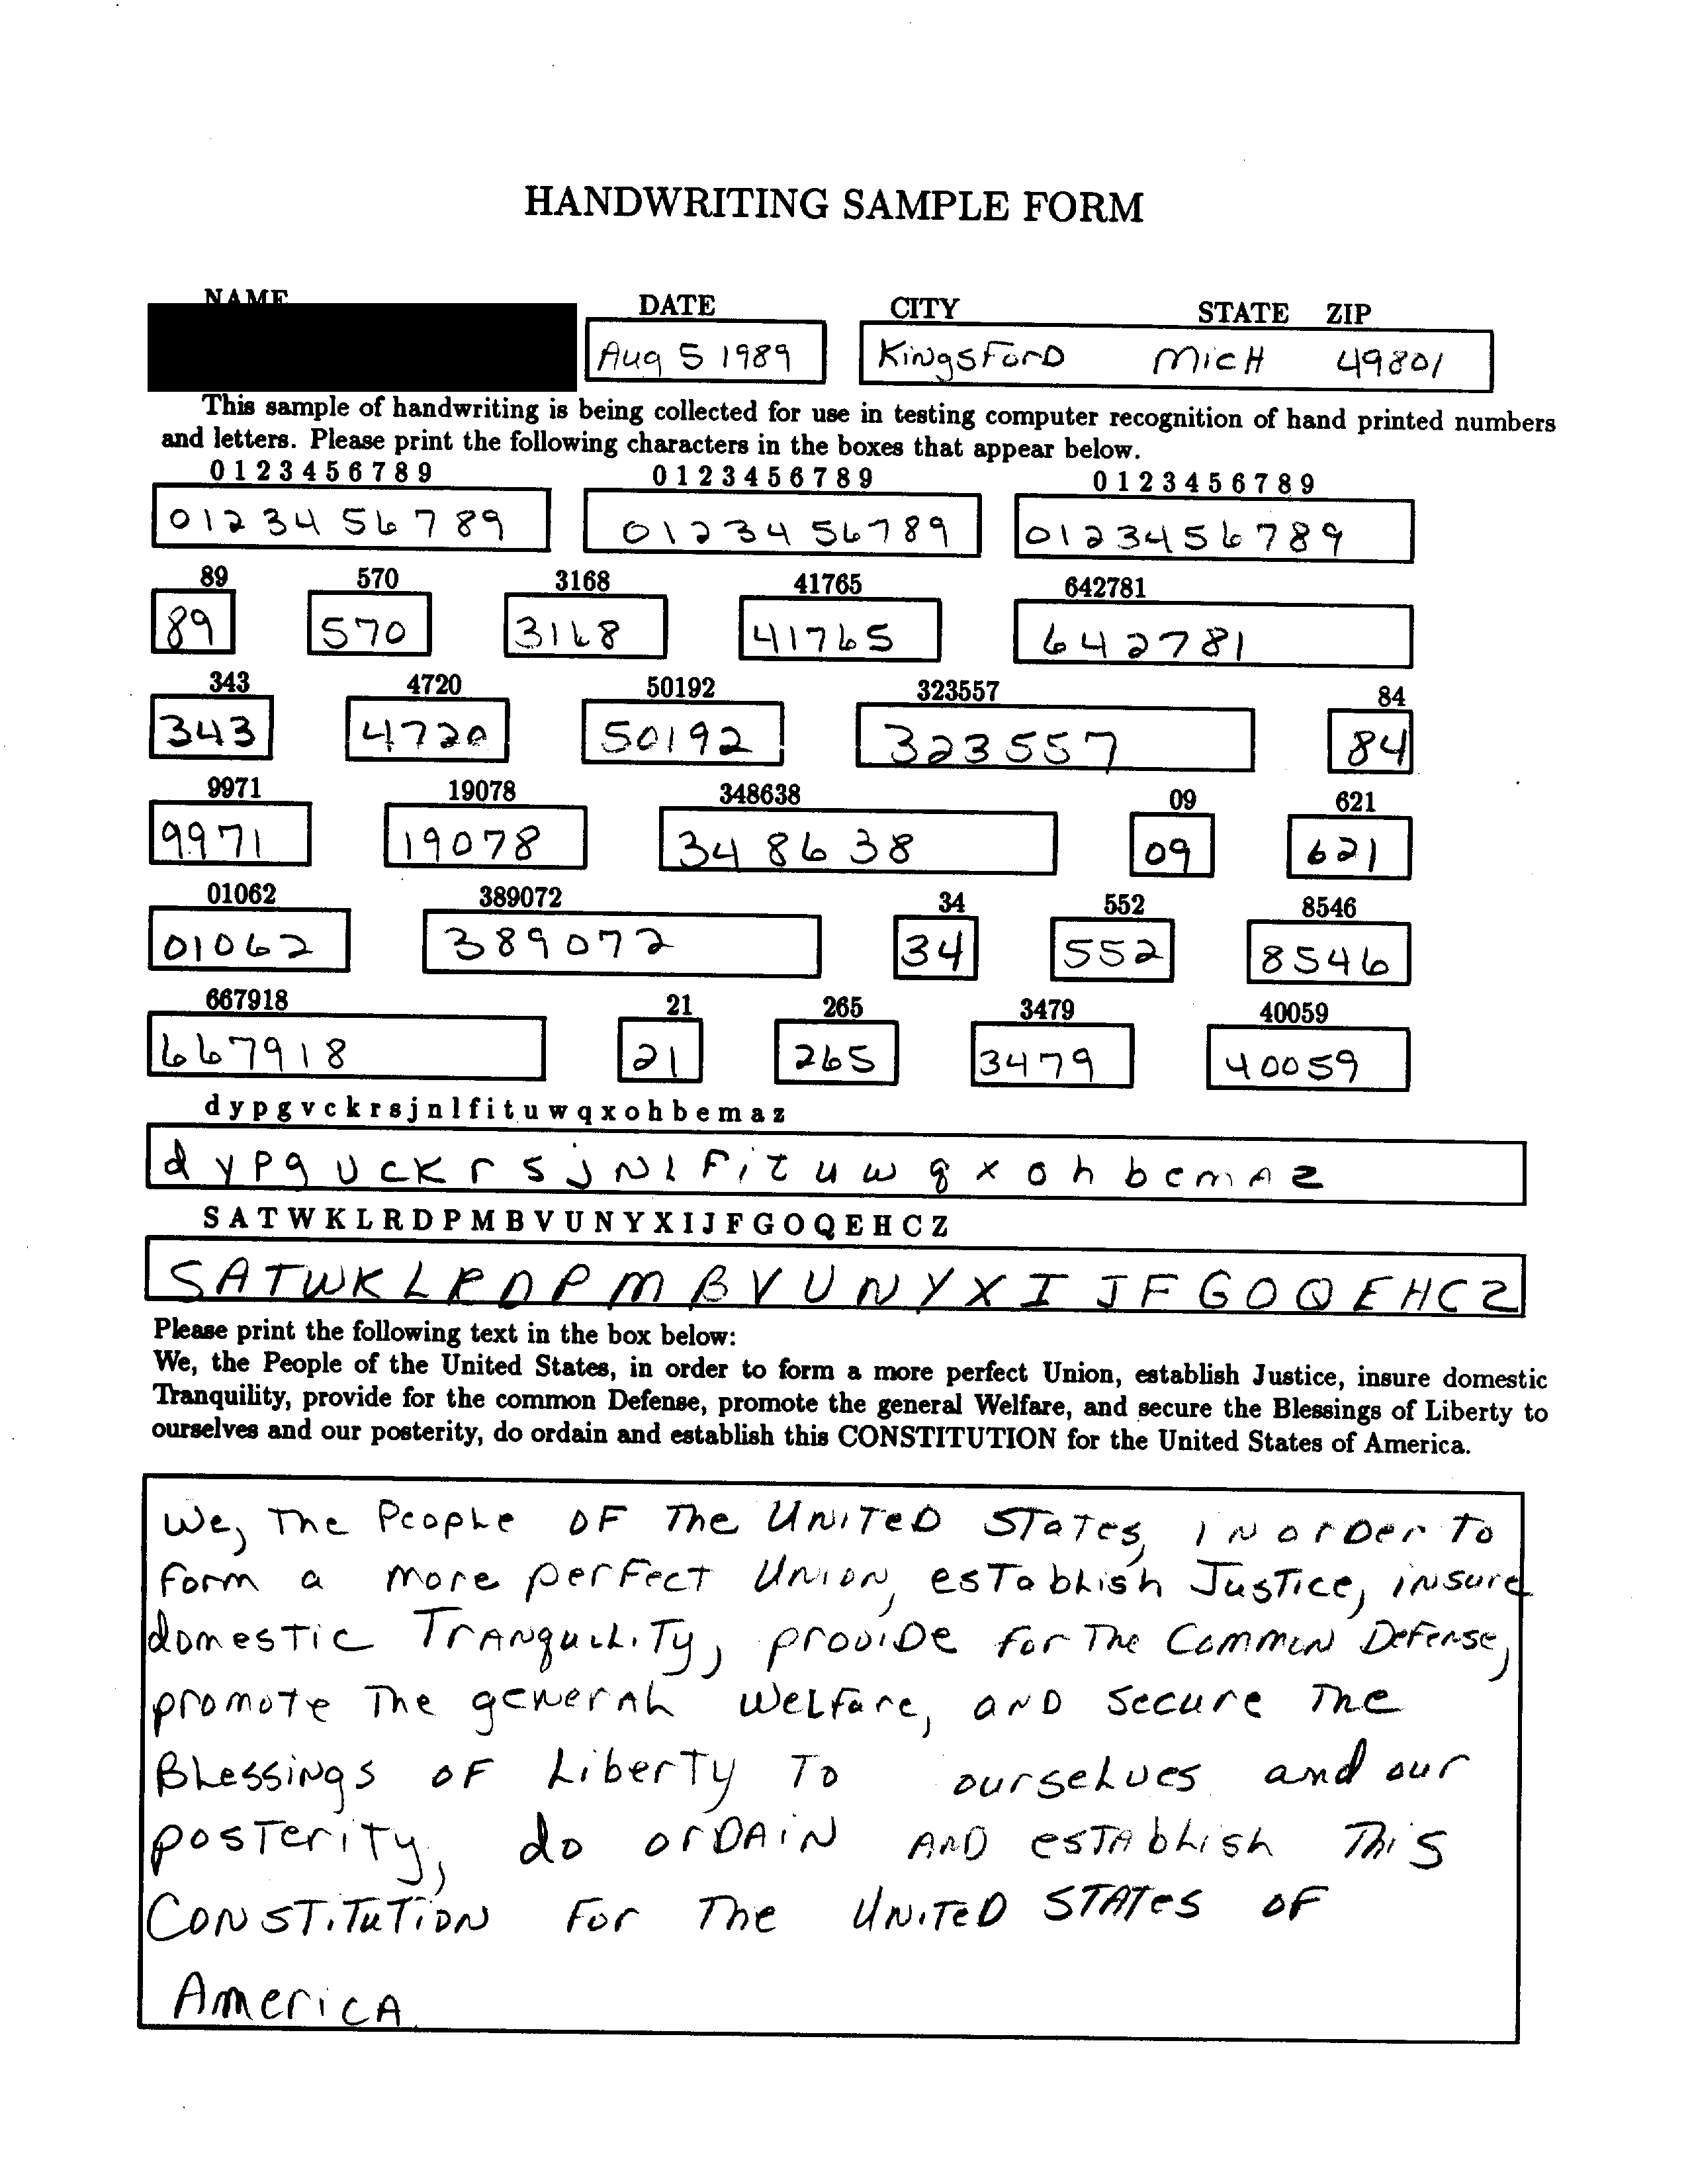 HANDWRITING SAMPLE FORM
NAME DATE CITY STATE ZIP
Aug 5 1989 KingsForD MicH 49801
This sample of handwriting is being collected for use in testing computer recognition of hand printed numbers
and letters. Please print the following characters in the boxes that appear below.
0 1 2 3 4 5 6 7 8 9 0 1 2 3 4 5 6 7 8 9 0 1 2 3 4 5 6 7 8 9
0123456789 0123456789 0123456789
89 570 3168 41765 642781
89 570 3168 41765 642781
343 4720 50192 323557 84
343 4720 50192 323557 84
9971 19078 348638 09 621
9971 19078 348638 09 621
01062 389072 34 552 8546
01062 389072 34 552 8546
667918 21 265 3479 40059
667918 21 265 3479 40059
d y p g v c k r s j n l f i t u w q x o h b e m a z
d y p g v c K r s j N l F i t u w q x o h b e m A z
S A T W K L R D P M B V U N Y X I J F G O Q E H C Z
S A T W K L R D P M B V U N Y X I J F G O Q E H C Z
Please print the following text in the box below:
We, the People of the United States, in order to form a more perfect Union, establish Justice, insure domestic
Tranquility, provide for the common Defense, promote the general Welfare, and secure the Blessings of Liberty to
ourselves and our posterity, do ordain and establish this CONSTITUTION for the United States of America.
We, The PeopLe OF The UNiTeD STaTes, iN orDer To
form a more perFecT UNiON, esTabLish JusTice, iNsure
domesTic TrANquiLiTy, proviDe for The CommoN DeFeNse,
promoTe The geNerAL WeLFare, aND secure The
BLessiNgs oF LiberTy To ourseLves and our
posTeriTy, do orDAiN AND esTAbLish This
CoNSTiTuTioN For The UNiTeD STATes oF
AmericA.